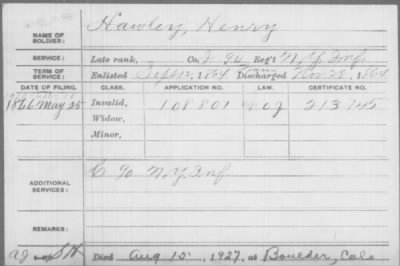 NAME OF SOLDIER: Hawley, Henry
SERVICE: Late rank, Co. I 90 Reg't N.Y. Inf.
TERM OF SERVICE: Enlisted Sept 12, 1864 Discharged Nov 28, 1864
DATE OF FILING. CLASS. APPLICATION NO. LAW. CERTIFICATE NO.
1866 May 25 Invalid, 108801 213745
Widow,
Minor,
ADDITIONAL SERVICES: C 90 N.Y. Inf
REMARKS:
Died Aug 15, 1927, at Boulder, Colo